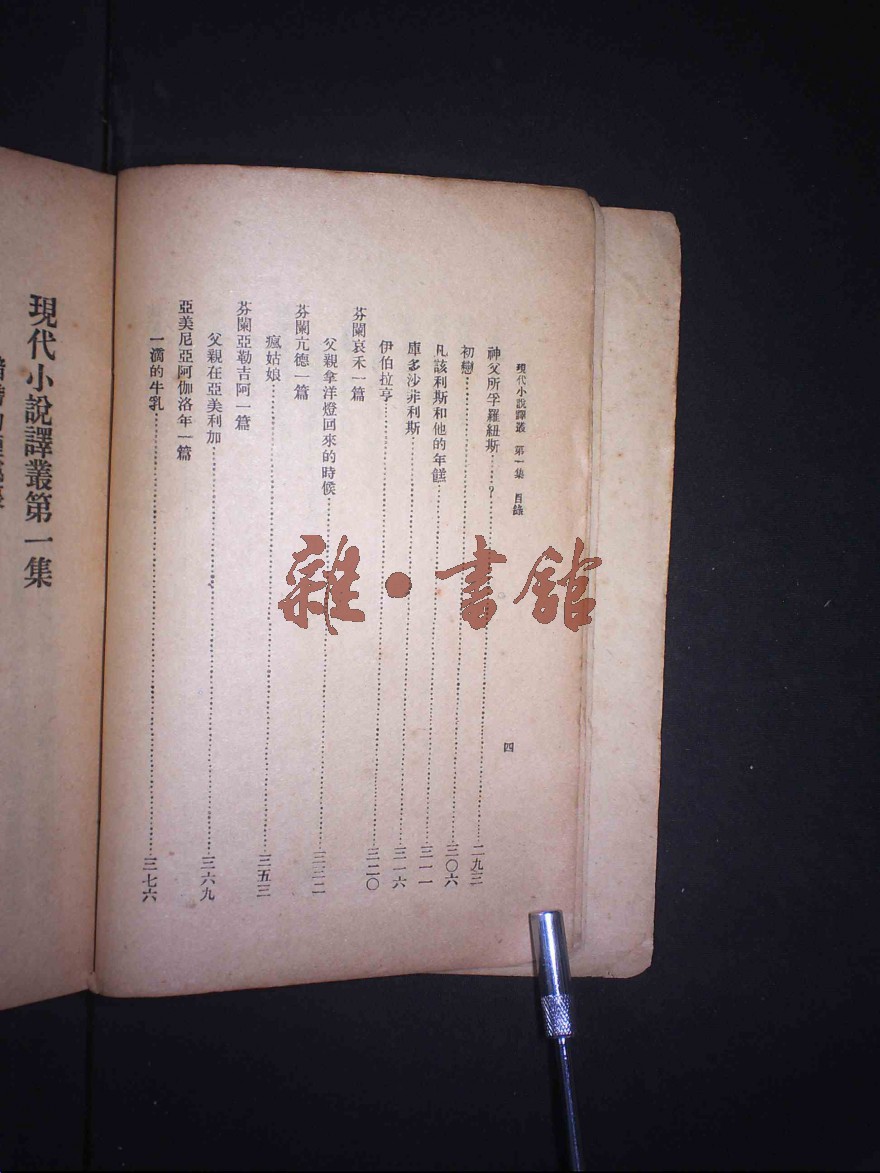 現代小說譯叢　第一集　目錄
四
神父所孚羅紐斯……?……二九三
初戀……三〇六
凡該利斯和他的年糕……三一一
庫多沙非利斯……三一六
伊伯拉亨……三二〇
芬闌哀禾一篇
父親拿洋燈回來的時候……三三二
芬闌亢德一篇
瘋姑娘……三五三
芬闌亞勒吉阿一篇
父親在亞美利加……三六九
亞美尼亞阿伽洛年一篇
一滴的牛乳……三七六
現代小說譯叢第一集
雜·書館